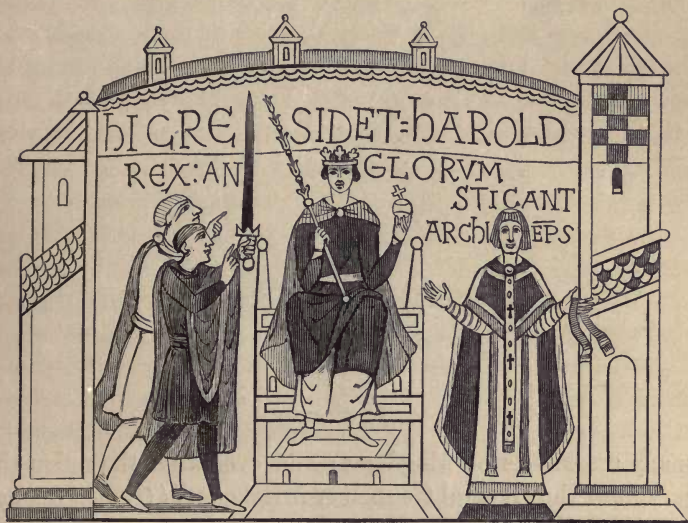 hIC RE SIDET:hAROLD
REX:AN GLORVM
STIGANT
ARChI EPS